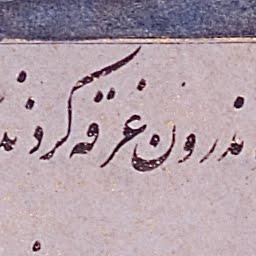 ندرون غرقه کردند